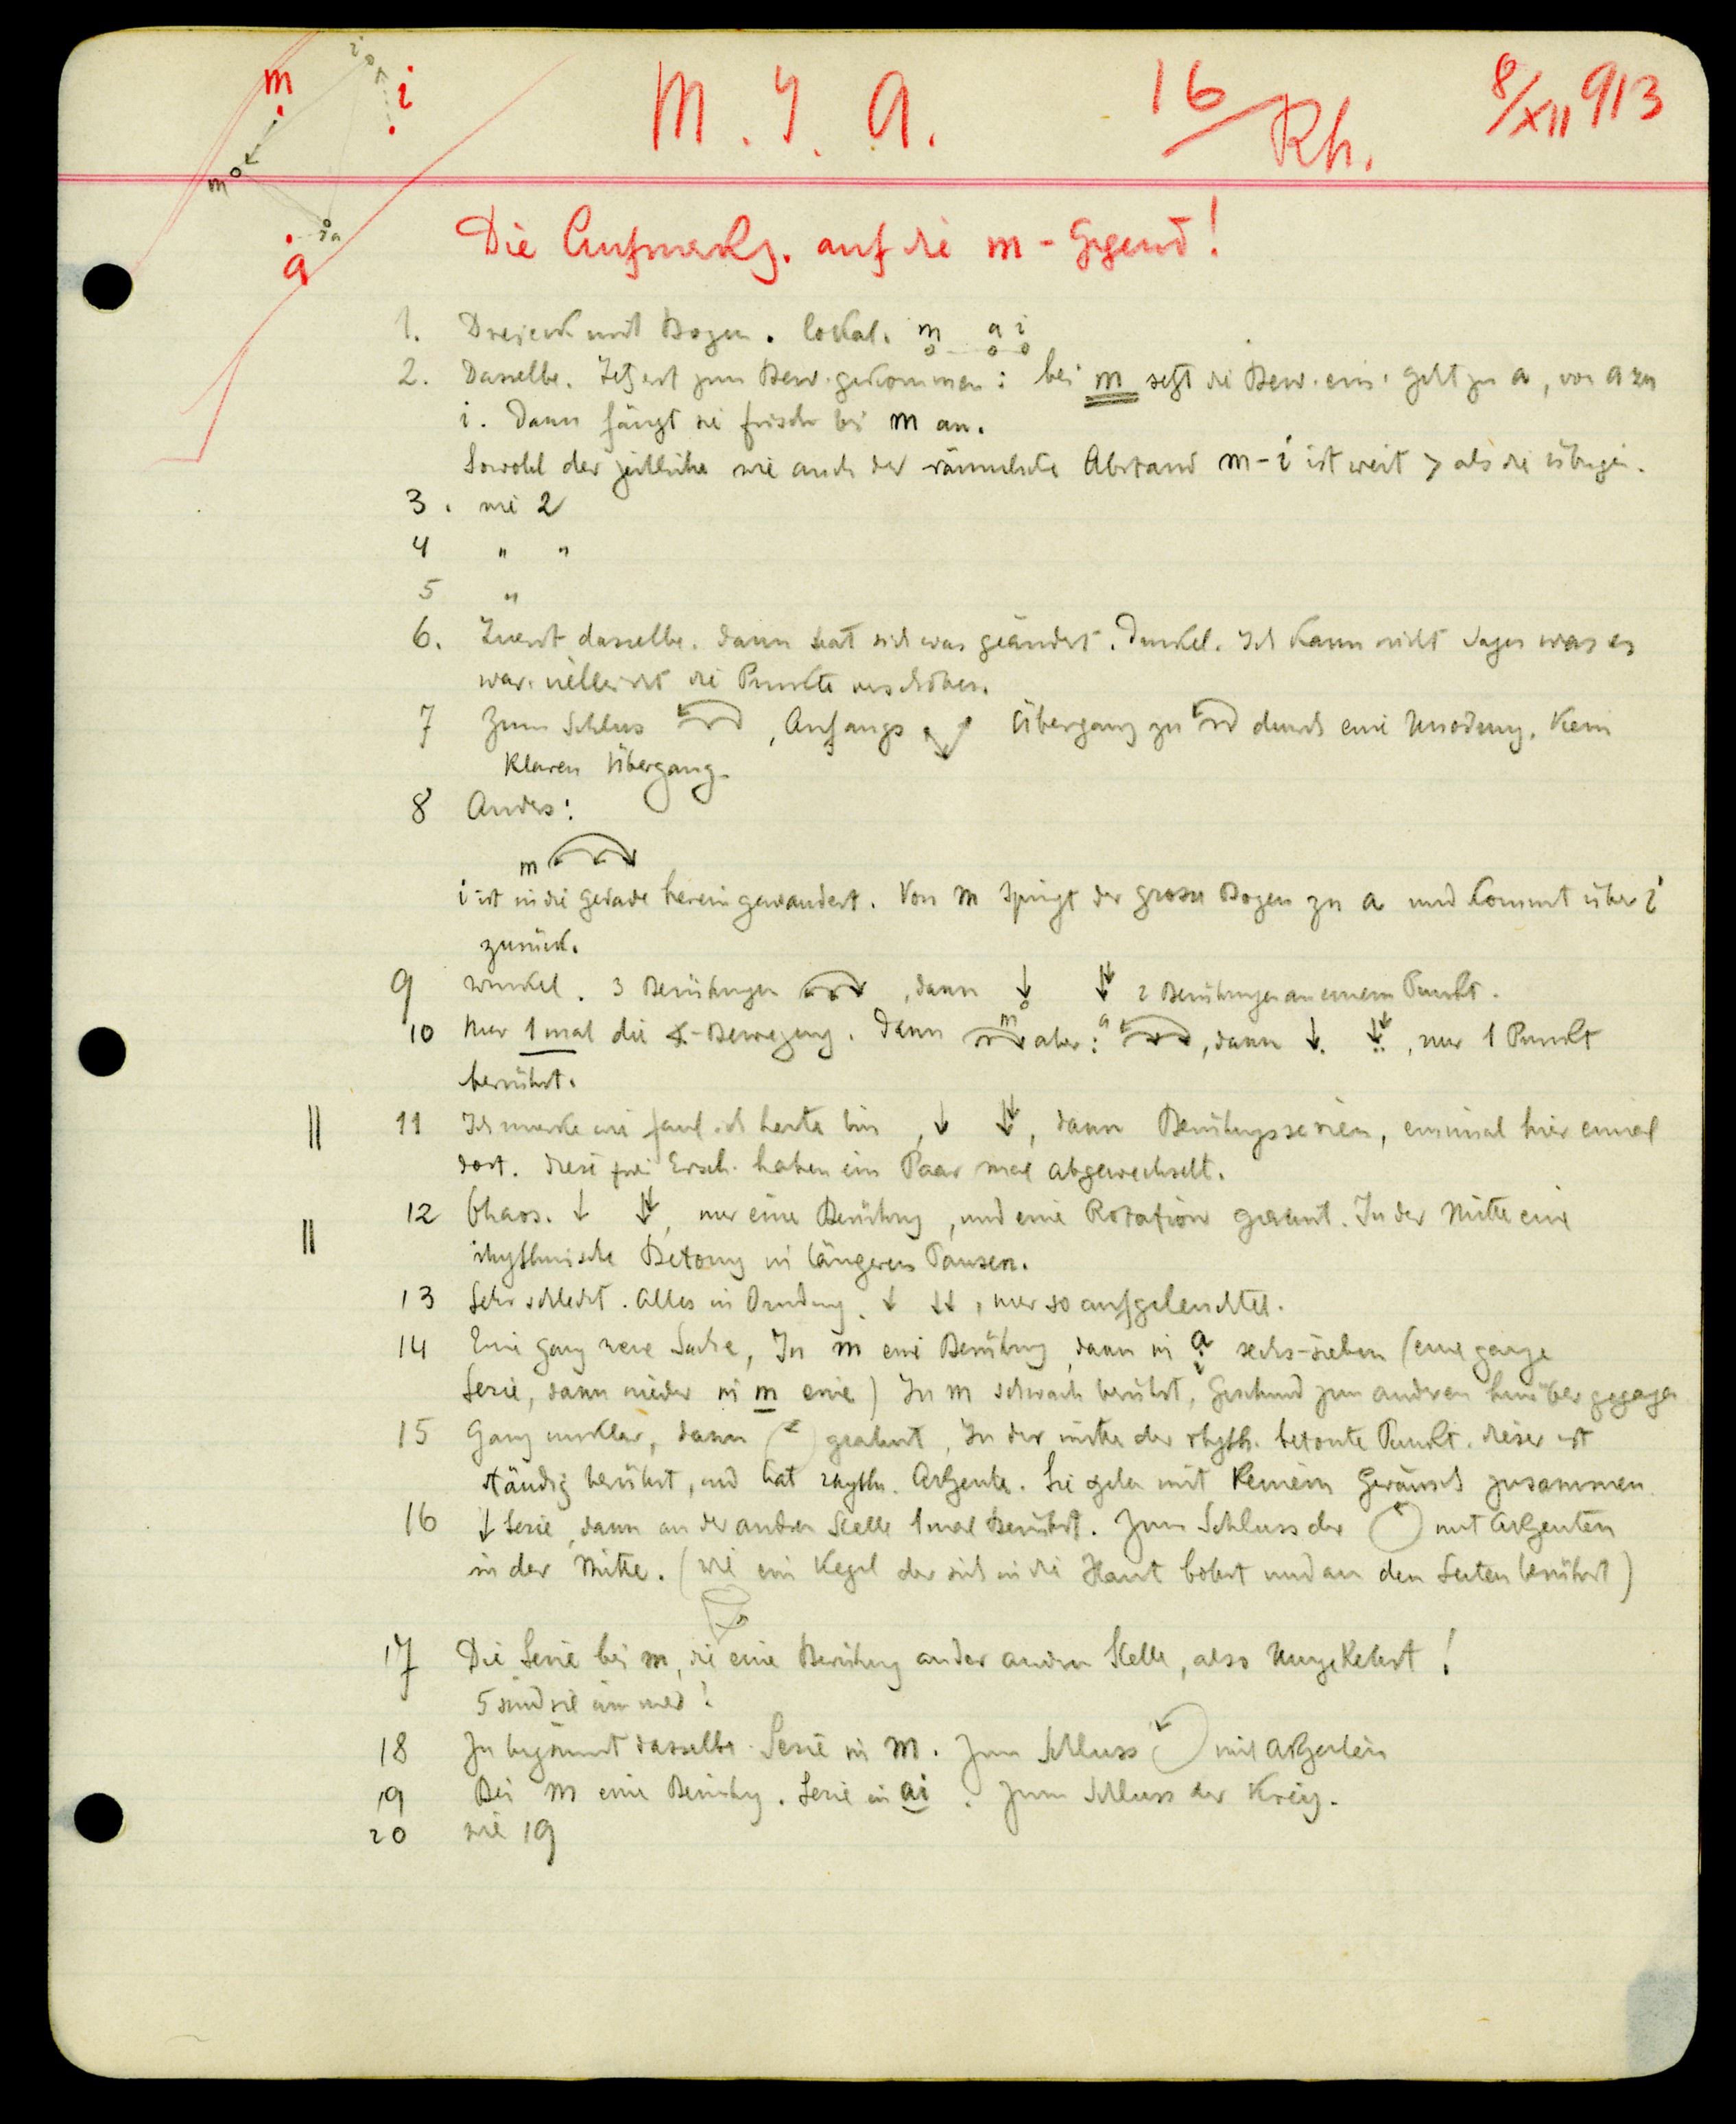 m i i
m a
a
M. I. A. 16/Rh. 8/XII 913
Die Aufmerks. auf die m-Gegend!
1. Dreieck mit Bogen. lokal. m a i
2. Dasselbe. Jetzt zum Bew. gekommen: bei m setzt die Bew. ein. geht zu a, von a zu
i. Dann fängt sie frisch bei m an.
Sowohl der zeitliche wie auch der räumliche Abstand m-i ist weit > als die übrigen.
3. wie 2
4 " "
5 "
6. Zuerst dasselbe. dann hat sich was geändert. Dunkel. Ich kann nicht sagen was es
war. vielleicht die Punkte verschoben.
7 Zum Schluss , Anfangs Übergang zu durch eine Kein
klaren Übergang.
8 Anders:
m
i ist in die gerade hereingewandert. Von m springt der grosse Bogen zu a und kommt über i
zurück.
9 Winkel. 3 Berührungen , dann ↓ ⇊ 2 Berührungen an einem Punkt.
10 Nur 1 mal die ∢-Bewegung. Dann m aber: a , dann ↓. ⇊, nur 1 Punkt
berührt.
11 Ich merke wie faul ich heute bin, ↓ ⇊, dann Berührungsserien, einmal hier einmal
dort. diese zwei Ersch. haben ein Paar mal abgewechselt.
12 Chaos. ↓ ⇊, nur eine Berührung, und eine Rotation geahnt. In der Mitte eine
rhythmische Betonung in längeren Pausen.
13 Sehr schlecht. Alles in Ordnung. ↓ ↓↓, nur so aufgeleuchtet.
14 Eine ganz neue Sache, In m eine Berührung, dann in a i sechs-sieben (eine ganze
Serie, dann wieder in m eine) In m schwach berührt, zum anderen hinübergegangen
15 Ganz unklar, dann geahnt, In der mitte der rhyth. betonte Punkt. dieser ist
ständig berührt, und hat rhyth. Akzente. Sie gehen mit keinem Geräusch zusammen
16 ↓ Serie, dann an der andren Stelle 1 mal Berührt. Zum Schluss der mit Akzenten
in der Mitte. (wie ein Kegel der sich in die Haut bohrt und an den Seiten berührt)
17 Die Serie bei m, die eine Berührung an der andren Stelle, also Umgekehrt!
5 sind sie immer!
18 Zu beginnt dasselbe. Serie in m. Zum Schluss mit Akzenten
19 Bei m eine Berührung. Serie in ai. Zum Schluss der Kreis.
20 wie 19